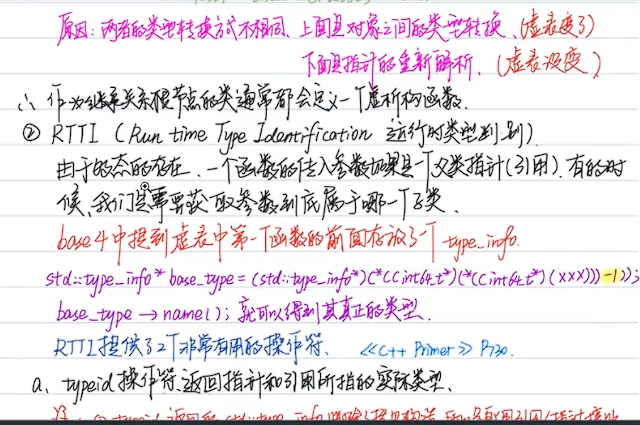 原因：两者的类型转换方式不相同，上面是对象之间的类型转换，（虚表变了）
下面是指针的重新解析，（虚表没变）
∴ 作为继承关系根节点的类通常都会定义一个虚析构函数.
② RTTI （Run time Type Identification 运行时类型判别）
由于多态的存在，一个函数的传入参数如果是一个父类指针(引用)，有的时
候，我们是需要获取参数到底属于哪一个子类.
base4中提到虚表中第一个函数的前面存放了一个type_info.
std::type_info* base_type = (std::type_info*)(*((int64_t*)(*((int64_t*)(xxx)))-1));
base_type → name(); 就可以得到其真正的类型.
RTTI提供了2个非常有用的操作符. 《C++ Primer》P730.
a. typeid操作符.返回指针和引用所指的实际类型.